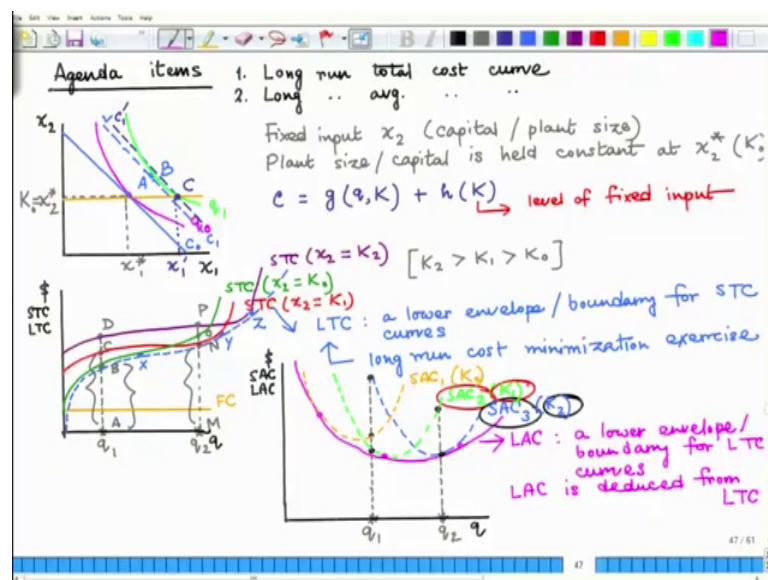 File Edit View Insert Actions Tools Help
Agenda items
1. Long run total cost curve
2. Long .. avg. .. ..
Fixed input x2 (capital / plant size)
Plant size / capital is held constant at x2* (K0
C = g(q, K) + h(K)
level of fixed input
x2
c1'
A
B
C
K0=x2*
q1
q0
C0
C1
x1*
x1'
x1
STC (x2 = K2)
[K2 > K1 > K0]
STC (x2 = K0)
STC (x2 = K1)
$
STC
LTC
D
C
B
A
P
O
N
M
X
Y
Z
FC
q1
q2
q
LTC : a lower envelope / boundary for STC
curves
long run cost minimization exercise
$
SAC
LAC
SAC1 (K0)
SAC2 (K1)
SAC3 (K2)
LAC : a lower envelope /
boundary for LTC
curves
LAC is deduced from
LTC
q1
q2
q
47 / 61
47